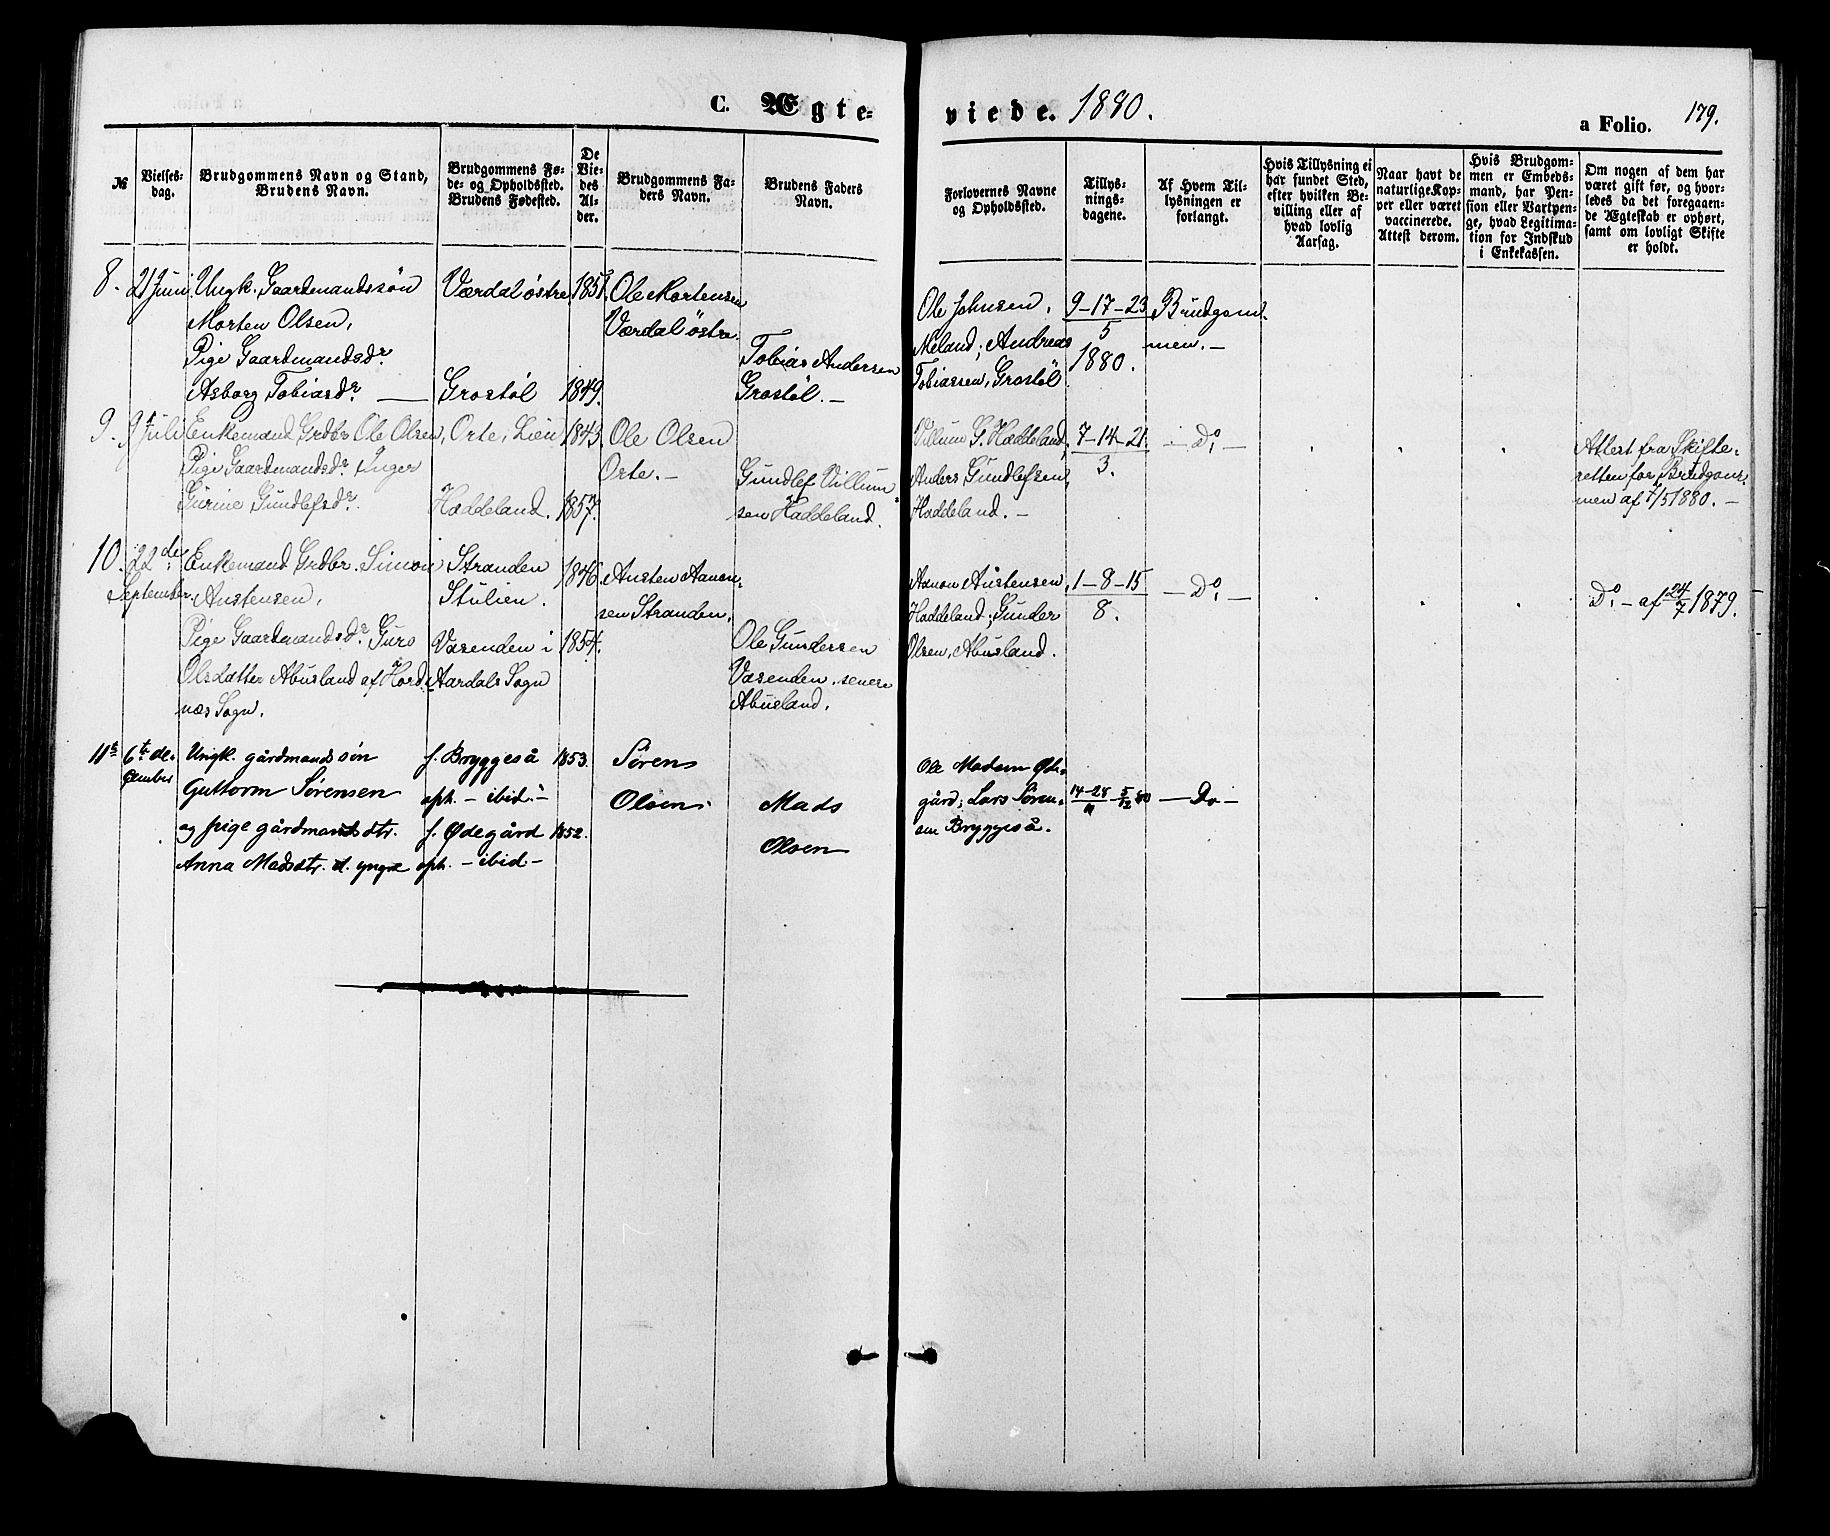 C. Ægte-
viede. 1880.
a Folio. 179.
№
Vielses-
dag.
Brudgommens Navn og Stand,
Brudens Navn.
Brudgommens Fø-
de- og Opholdssted.
Brudens Fødested.
De
Vie-
des
Al-
der.
Brudgommens Fa-
ders Navn.
Brudens Faders
Navn.
Forlovernes Navne
og Opholdssted.
Tillys-
nings-
dagene.
Af Hvem Til-
lysningen er
forlangt.
Hvis Tillysning ei
har fundet Sted,
efter hvilken Be-
villing eller af
hvad lovlig
Aarsag.
Naar havt de
naturlige Kop-
per eller været
vaccinerede.
Attest derom.
Hvis Brudgom-
men er Embeds-
mand, har Pen-
sion eller Vartpen-
ge, hvad Legitima-
tion for Indskud
i Enkekassen.
Om nogen af dem har
været gift før, og hvor-
ledes da det foregaaen-
de Ægteskab er ophørt,
samt om lovligt Skifte
er holdt.
8. 21 Juni Ungk. Gaardmandssøn
Morten Olsen,
Pige Gaardmandsdr
Asborg Tobiasdr
Værdal østre 1851.
Grostøl 1849.
Ole Mortensen
Værdal østre.
Tobias Andersen
Grostøl. —
Ole Johnsen,
Meland; Andreas
Tobiassen, Grostøl
9-17-23
5
1880.
Brudgom-
men. —
9. 9 Juli Enkemand Grdbr. Ole Olsen,
Pige Gaardmandsdr. Inger
Gurine Gundlefsdr.
Orte, Lien 1845.
Haddeland. 1857.
Ole Olsen
Orte. —
Gundlef Villum-
sen Haddeland.
Villum G. Haddeland,
Anders Gundlefsen,
Haddeland. —
7-14-21.
3.
— Do. —
Attest fra Skifte-
retten for Brudgom-
men af /5 1880. —
10. 22de
September.
Enkemand Grdbr. Simon
Austensen,
Pige Gaardmandsdr. Guro
Olsdatter Abusland af Hord-
næs Sogn.
Stranden
Stulien. 1846.
Vasenden i 1854.
Aardals Sogn
Austen Aanon-
sen Stranden.
Ole Gundersen
Vasenden, senere
Abusland.
Aanon Austensen
Haddeland; Gunder
Olsen, Abusland.
1-8-15
8.
— Do. —
Do. — af 24/7 1879.
11te 6te de-
cember
Ungk. gårdmandssøn
Guttorm Sørensen
og pige gårdmandsdtr.
Anna Madsdtr. d. yngre
f. Bryggeså 1853.
oph. — ibid. —
f. Ødegård 1852.
oph. — ibid —
Sørens
Olsen.
Mads
Olsen
Ole Madsen Øde-
gård; Lars Søren-
sen Bryggeså.
14-28/11 5/12 80
— Do —